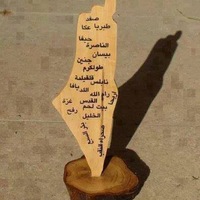 صفد
طبريا عكا
حيفا
الناصرة
بيسان
جنين
طولكرم
قلقيلية
نابلس يافا
اللد
رام الله
أريحا
القدس غزة
بيت لحم رفح
الخليل
بئر السبع
صحراء النقب